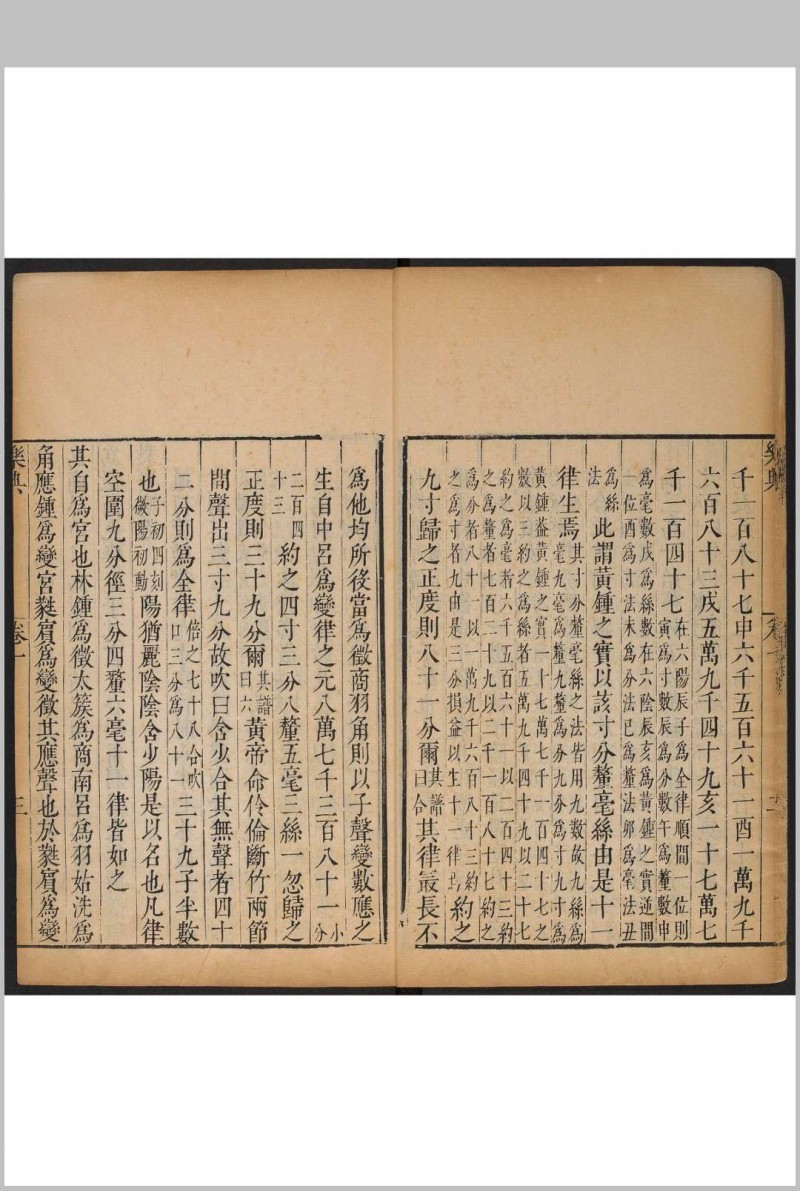 千一百八十七申六千五百六十一酉一萬九千
六百八十三戌五萬九千四十九亥一十七萬七
千一百四十七在六陽辰子爲全律順間一位則
寅爲寸數辰爲分數午爲釐數申
爲毫數戌爲絲數在六陰辰亥爲黃鍾之實逆間
一位酉爲寸法未爲分法巳爲釐法卯爲毫法丑
爲絲
法此謂黃鍾之實以該寸分釐毫絲由是十一
律生焉其寸分釐毫絲之法皆用九數故九絲爲
毫九毫爲釐九釐爲分九分爲寸九寸爲
黃鍾葢黃鍾之實一十七萬七千一百四十七之
數以三約之爲絲者五萬九千四十九以二十七
約之爲毫者六千五百六十一以二百四十三約
之爲釐者七百二十九以二千一百八十七約之
爲分者八十一以一萬九千六百八十三約
之爲寸者九由是三分損益以生十一律焉約之
九寸歸之正度則八十一分爾其譜
曰合其律最長不
爲他均所役當爲徵商羽角則以子聲變數應之
生自中呂爲變律之元八萬七千三百八十一小
分
二百四
十三約之四寸三分八釐五毫三絲一忽歸之
正度則三十九分爾其譜
曰六黃帝命伶倫斷竹兩節
間聲出三寸九分故吹曰含少合其無聲者四十
二分則爲全律倍之七十八合吹
口三分爲八十一三十九子半數
也子初四刻
微陽初動陽猶麗陰陰含少陽是以名也凡律
空圍九分徑三分四釐六毫十一律皆如之
其自爲宮也林鍾爲徵太簇爲商南呂爲羽姑洗爲
角應鍾爲變宮蕤賓爲變徵其應聲也於蕤賓爲變
樂典
卷一
三
樂典
卷一